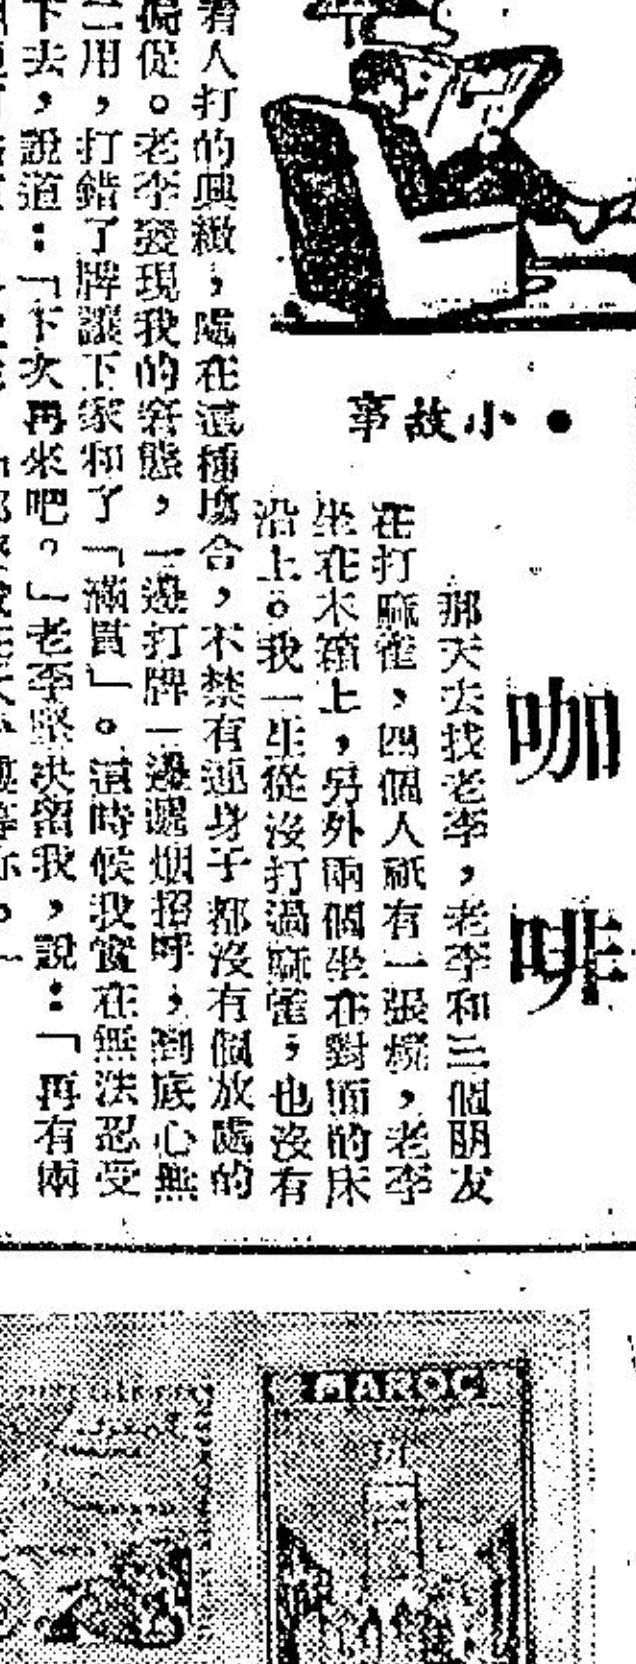 ●小故事
咖啡
那天去找老李，老李和三個朋友
在打麻雀，四個人祇有一張櫈，老李
坐在木箱上，另外兩個坐在對面的床
沿上。我一生從沒打過麻雀，也沒有
看人打的興緻，處在這種塲合，不禁有連身子都沒有個放處的
侷促。老李發現我的窘態，一邊打牌一邊遞烟招呼，到底心無
二用，打錯了牌讓下家和了「滿貫」。這時候我實在無法忍受
下去，說道：「下次再來吧。」老李堅決留我，說：「再有兩
MAROC